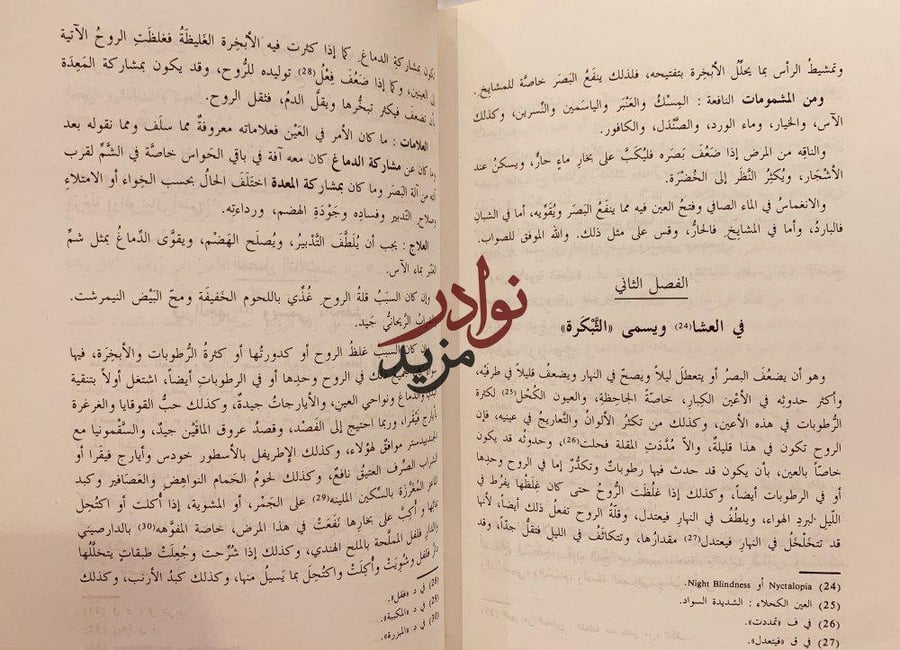 وتمشيطُ الرأس بما يحلِّلُ الأبخِرة بتفتيحه، فلذلك ينفَعُ البَصَر خاصَّة للمشايِخ.
ومن المشمومات النافعة : المِسْكُ والعَنْبَر والياسَمين والنِّسرين، وكذلك
الآس، والخيار، وماء الورد، والصَّنْدَل، والكافور.
والناقِه من المرض إذا ضَعُفَ بَصَره فليُكَبَّ على بخارِ ماءٍ حارٍّ، ويسكنُ عند
الأشْجار، ويُكثِرُ النَّظَر إلى الخُضْرَة.
والانغماسُ في الماء الصافي وفتحُ العين فيه مما ينفَعُ البَصَر ويُقَوِّيه، أما في الشبان
فالباردُ، وأما في المشايِخَ فالحارُّ، وقس على مثل ذلك. والله الموفق للصواب.
الفصل الثاني
في العشا(24) ويسمى «الشَّبْكَرة»
وهو أن يضعُفَ البصرُ أو يتعطلَ ليلاً ويصحّ في النهار ويضعفُ قليلاً في طرفيْه،
وأكثر حدوثِه في الأعْين الكِبار، خاصّةً الجاحِظةِ، والعيون الكُحْل(25) لكثرة
الرُّطوبات في هذه الأعين، وكذلك من تكثرُ الألوانُ والتَّعاريجُ في عينيه، فإن
الروح تكون في هذا قليلةً، والاّ مُدَّدَتِ المقلة فحلت(26)، وحدوثُه قد يكون
خاصّاً بالعين، بأن يكون قد حدث فيها رطوباتٌ وتكدُّرٌ إما في الروح وحدِها
أو في الرطوبات أيضاً، وكذلك إذا غلُظَت الرُّوحُ حتى كان غِلَظُها يفرُط في
اللَّيل لبردِ الهواء، ويلطُفُ في النهارِ فيعتدل، وقلّةُ الروح تفعلُ ذلك أيضاً، لأنها
قد تتخَلْخَلُ في النهارِ فيعتدل(27) مقدارُها، وتتكاثَفُ في الليل فتقلُّ جدّاً، وقد
(24) Nyctalopia أو Night Blindness.
(25) العين الكحلاء : الشديدة السواد.
(26) في ف «تمددت».
(27) في ق «فيتعدل».
يكون بمشاركةِ الدماغِ كما إذا كثرت فيه الأبْخِرة الغَليظَةُ فغلظَتِ الروحُ الآتية
إلى العينين، وكما إذا ضَعُفَ فِعْلُ(28) توليده للرُّوح، وقد يكون بمشاركة المَعِدَة
بأن تضعفَ فيكثر تبخُّرها ويقلَّ الدمُ، فتقل الروح.
العلامات : ما كان الأمر في العَيْن فعلاماته معروفةٌ مما سلَف ومما نقوله بعد
وما كان عن مشاركة الدماغ كان معه آفة في باقي الحَواس خاصَّة في الشَّمِّ لقرب
آلته من آلة البَصَر وما كان بمشاركة المعدة اختَلَفَ الحالُ بحسب الخِواء أو الامتلاءِ
وصلاحِ التَّدبير وفسادِه وجَوْدَةِ الهضم، ورداءتِه.
العلاج : يجب أن يُلَطَّفَ التَّدْبيرُ، ويُصلَح الهَضْم، ويقوَّى الدِّماغُ بمثل شمِّ
العنبر بماء الآس.
وإن كان السبَبُ قلةُ الروح غُذِّي باللحومِ الخَفيفَة ومحّ البَيْض النيمرشت.
والشرابُ الرَّيحانيُّ جَيد.
وإن كان السبب غلظُ الروح أو كدورتُها أو كثرةُ الرُّطوبات والأبخِرَة، فيها
ذلك في الروحِ وحدِها أو في الرطوباتِ أيضاً، اشتغل أولاً بتنقية
والدماغ ونواحي العين، والأيارجات جيدةٌ، وكذلك حبُّ القوقايا والغرغرة
بأيارج فيْقرا، وربما احتيج إلى الفَصْد، وفصدُ عروق الماقَيْن جيدٌ، والسَّقْمونيا مع
الجندبيدستر موافقٌ لهؤلاء، وكذلك الإطريفل بالأسطور خودس وأيارج فيقرا أو
الشراب الصِّرف العتيقُ نافعٌ، وكذلك لحومُ الحَمام النواهِض والعَصافير وكبد
الماعز المُغَرَّزة بالسِّكين المليئه(29) على الجَمْر، أو المشوية، إذا أُكلت أو اكتُحل
بمائها و أُكِبَّ على بخارِها نَفَعَتْ في هذا المرض، خاصة المفوَّهه(30) بالدارصيني
والدار فلفل المملَّحة بالملح الهندي، وكذلك إذا شُرِّحت وجُعِلَتْ طبقاتٍ يتخلَّلُها
دار فلفل وشُوِيَتْ وأُكلَتْ واكتُحِلَ بما يَسيلُ منها، وكذلك كبدُ الأرنب، وكذلك
(28) في د «فقل».
(29) في د «المكبية».
(30) في د «المبزرة».
نوادر
مزيد